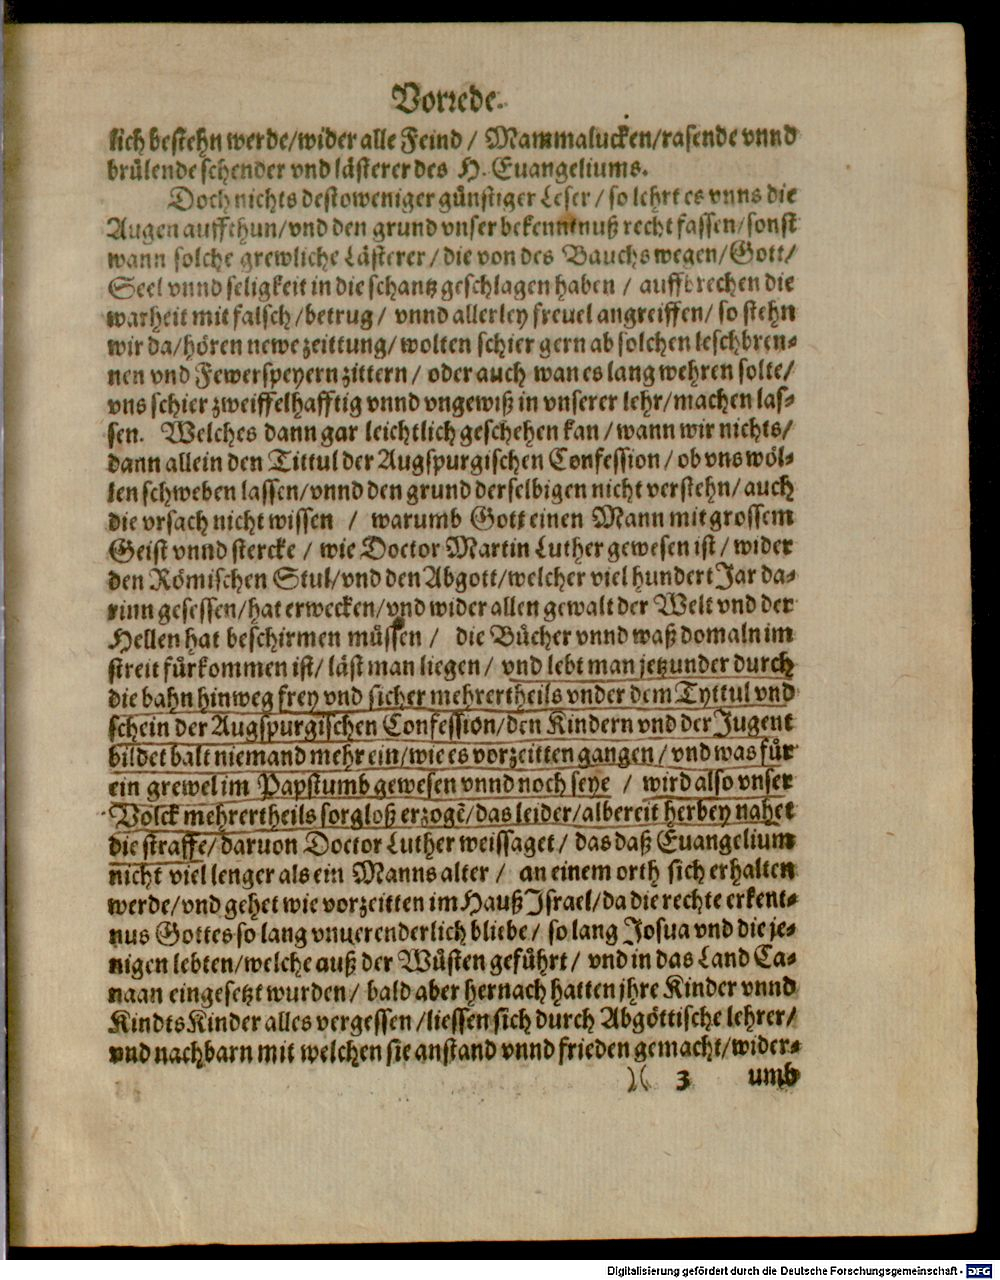 Vorrede.
lich bestehn werde/wider alle Feind / Mammalucken/rasende vnnd
brülende schender vnd lästerer des H. Euangeliums.
Doch nichts destoweniger günstiger Leser / so lehrt es vnns die
Augen auffthun/vnd den grund vnser bekenntnuß recht fassen/sonst
wann solche grewliche Lästerer/die von des Bauchs wegen/Gott/
Seel vnnd seligkeit in die schantz geschlagen haben / auffbrechen die
warheit mit falsch/betrug/ vnnd allerley freuel angreiffen/ so stehn
wir da/hören newe zeittung/wolten schier gern ab solchen leschbren-
nen vnd Fewerspeyern zittern / oder auch wan es lang wehren solte/
vns schier zweiffelhafftig vnnd vngewiß in vnserer lehr/machen las-
sen. Welches dann gar leichtlich geschehen kan/wann wir nichts/
dann allein den Tittul der Augspurgischen Confession/ob vns wöl-
len schweben lassen/vnnd den grund derselbigen nicht verstehn/auch
die vrsach nicht wissen / warumb Gott einen Mann mit grossem
Geist vnnd stercke / wie Doctor Martin Luther gewesen ist / wider
den Römischen Stul/vnd den Abgott/welcher viel hundert Jar da-
rinn gesessen/hat erwecken/vnd wider allen gewalt der Welt vnd der
Hellen hat beschirmen müssen / die Bücher vnnd waß domaln im
streit fürkommen ist/ läst man liegen/ vnd lebt man jetzunder durch
die bahn hinweg frey vnd sicher mehrertheils vnder dem Tyttul vnd
schein der Augspurgischen Confession/den Kindern vnd der Jugent
bildet balt niemand mehr ein/wie es vorzeitten gangen/vnd was für
ein grewel im Papstumb gewesen vnnd noch seye / wird also vnser
Volck mehrertheils sorgloß erzogē/das leider/albereit herbey nahet
die straffe/daruon Doctor Luther weissaget / das daß Euangelium
nicht viel lenger als ein Manns alter / an einem orth sich erhalten
werde/vnd gehet wie vorzeitten im Hauß Israel/da die rechte erkent-
nus Gottes so lang vnuerenderlich bliebe/ so lang Josua vnd die je-
nigen lebten/welche auß der Wüsten geführt/ vnd in das Land Ca-
naan eingesetzt wurden/ bald aber hernach hatten jhre Kinder vnnd
Kindts Kinder alles vergessen/liessen sich durch Abgöttische lehrer/
vnd nachbarn mit welchen sie anstand vnnd frieden gemacht/wider-
)( 3 umb
Digitalisierung gefördert durch die Deutsche Forschungsgemeinschaft - DFG